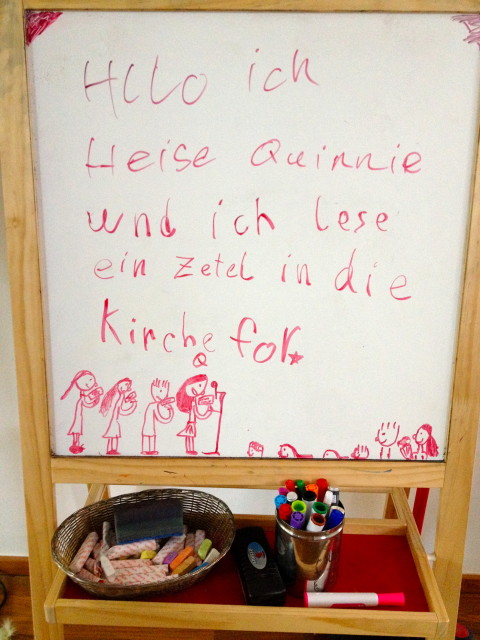 Hllo ich
Heise Quinnie
und ich lese
ein Zetel in die
Kirche for.
Q